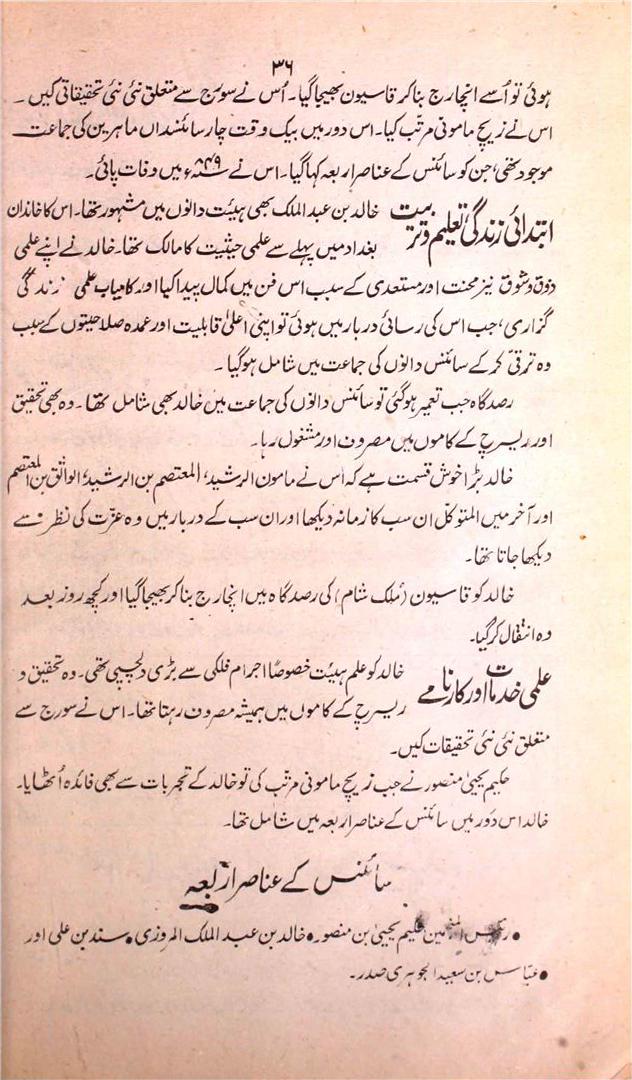 ۳۶
ہوئی تو اُسے انچارج بناکر قاسیون بھیجا گیا۔ اُس نے سورج سے متعلق نئی نئی تحقیقاتی کیں۔
اس نے زیچ مامونی مرتب کیا۔ اس دور میں بیک وقت چار سائنسداں ماہرین کی جماعت
موجود تھی، جن کو سائنس کے عناصر اربعہ کہا گیا۔ اس نے ۸۴۹ء میں وفات پائی۔
ابتدائی زندگی، تعلیم و تربیت خالد بن عبدالملک بھی ہیئت دانوں میں مشہور تھا۔ اس کا خاندان
بغداد میں پہلے سے علمی حیثیت کا مالک تھا۔ خالد نے اپنے علمی
ذوق وشوق نیز محنت اور مستعدی کے سبب اس فن میں کمال پیدا کیا اور کامیاب علمی زندگی
گزاری، جب اس کی رسائی دربار میں ہوئی تو اپنی اعلیٰ قابلیت اور عمدہ صلاحیتوں کے سبب
وہ ترقی کرکے سائنس دانوں کی جماعت میں شامل ہوگیا۔
رصدگاہ جب تعمیر ہوگئی تو سائنس دانوں کی جماعت میں خالد بھی شامل تھا۔ وہ بھی تحقیق
اور ریسرچ کے کاموں میں مصروف اور مشغول رہا۔
خالد بڑا خوش قسمت ہے کہ اس نے مامون الرشید، المعتصم بن الرشید، الواثق بن المعتصم
اور آخر میں المتوکل ان سب کا زمانہ دیکھا اور ان سب کے دربار میں وہ عزت کی نظر سے
دیکھا جاتا تھا۔
خالد کو قاسیون (ملک شام) کی رصدگاہ میں انچارج بناکر بھیجا گیا اور کچھ روز بعد
وہ انتقال کرگیا۔
علمی خدمات اور کارنامے خالد کو علم ہیئت خصوصًا اجرام فلکی سے بڑی دلچسپی تھی۔ وہ تحقیق و
ریسرچ کے کاموں میں ہمیشہ مصروف رہتا تھا۔ اس نے سورج سے
متعلق نئی نئی تحقیقات کیں۔
حکیم یحییٰ منصور نے جب زیچ مامونی مرتب کی تو خالد کے تجربات سے بھی فائدہ اُٹھایا۔
خالد اس دَور میں سائنس کے عناصر اربعہ میں شامل تھا۔
سائنس کے عناصر اربعہ
• حکیم یحییٰ بن منصور • خالد بن عبدالملک المروزی • سند بن علی اور
• عباس بن سعید الجوہری صدر۔